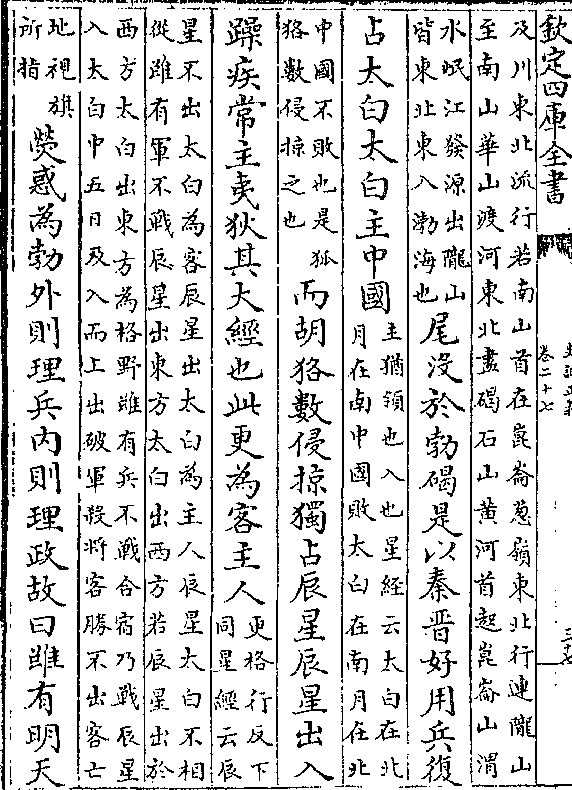 欽定四庫全書
史記正義
卷二十七
及川東北流行若南山首在崑崙蔥嶺東北行連隴山
至南山華山渡河東北盡碣石山黃河首起崑崙山渭
水岷江發源出隴山
皆東北東入渤海也
尾沒於勃碣是以秦晉好用兵復
占太白太白主中國
主猶領也入也星經云太白在北
月在南中國敗太白在南月在北
中國不敗也是狐
狢數侵掠之也
而胡狢數侵掠獨占辰星辰星出入
躁疾常主夷狄其大經也此更為客主人
更格行反下
同星經云辰
星不出太白為客辰星出太白為主人辰星太白不相
從雖有軍不戰辰星出東方太白出西方若辰星出於
西方太白出東方為格野雖有兵不戰合宿乃戰辰星
入太白中五日及入而上出破軍殺將客勝不出客亡
地視旗
所指
熒惑為勃外則理兵內則理政故曰雖有明天